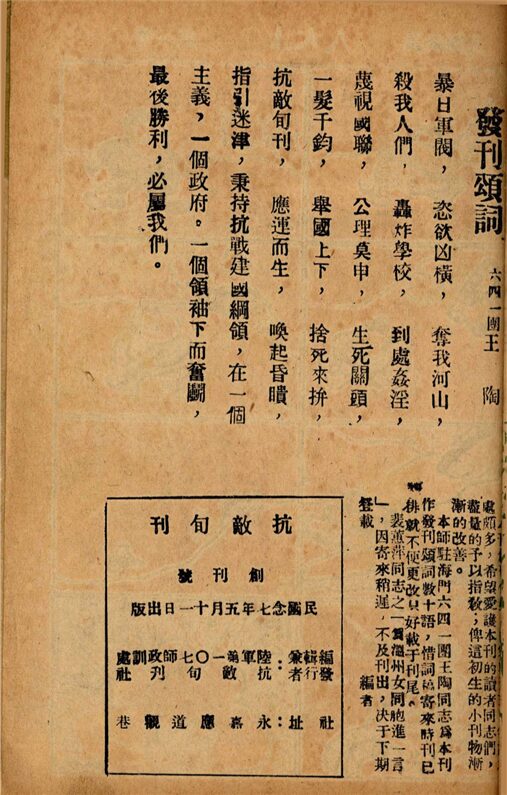 發刊頌詞 六四一團王 陶
暴日軍閥,恣欲凶橫,奪我河山,
殺我人們,轟炸學校,到處姦淫,
蔑視國聯,公理莫申,生死關頭,
一髮千鈞,舉國上下,捨死來拚,
抗敵旬刊,應運而生,喚起昏瞶,
指引迷津,秉持抗戰建國綱領,在一個
主義,一個政府。一個領袖下而奮鬭,
最後勝利,必屬我們。
處頗多,希望愛護本刊的讀者同志們,
盡量的予以指教;俾這初生的小刊物漸
漸的改善。
本師駐海門六四一團王陶同志爲本刊
作發刊頌詞數十語,惜詞稿寄來時刊已
排就不便更改只好載于刊尾。
裴蕙萍同志之「篇溫州女同胞進一言
」,因寄來稍遲,不及刊出,决于下期
登載 編者
抗敵旬刊
創刊號
民國念七年五月十一日出版
編輯兼發行者:陸軍第一〇七師政訓處
抗敵旬社
社址:永嘉應道觀巷